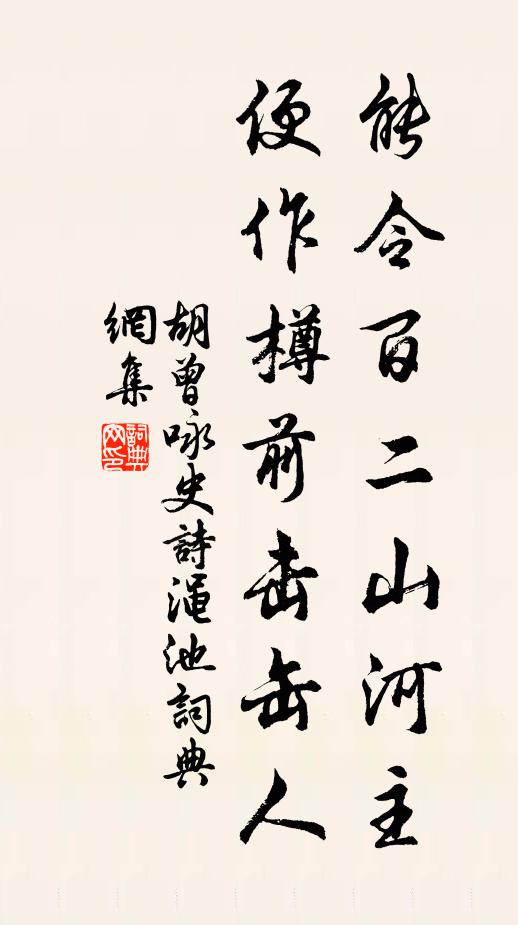 能令百二山河主
便作樽前击缶人
胡曾咏史詩渑池詞典
網集
詞典網印